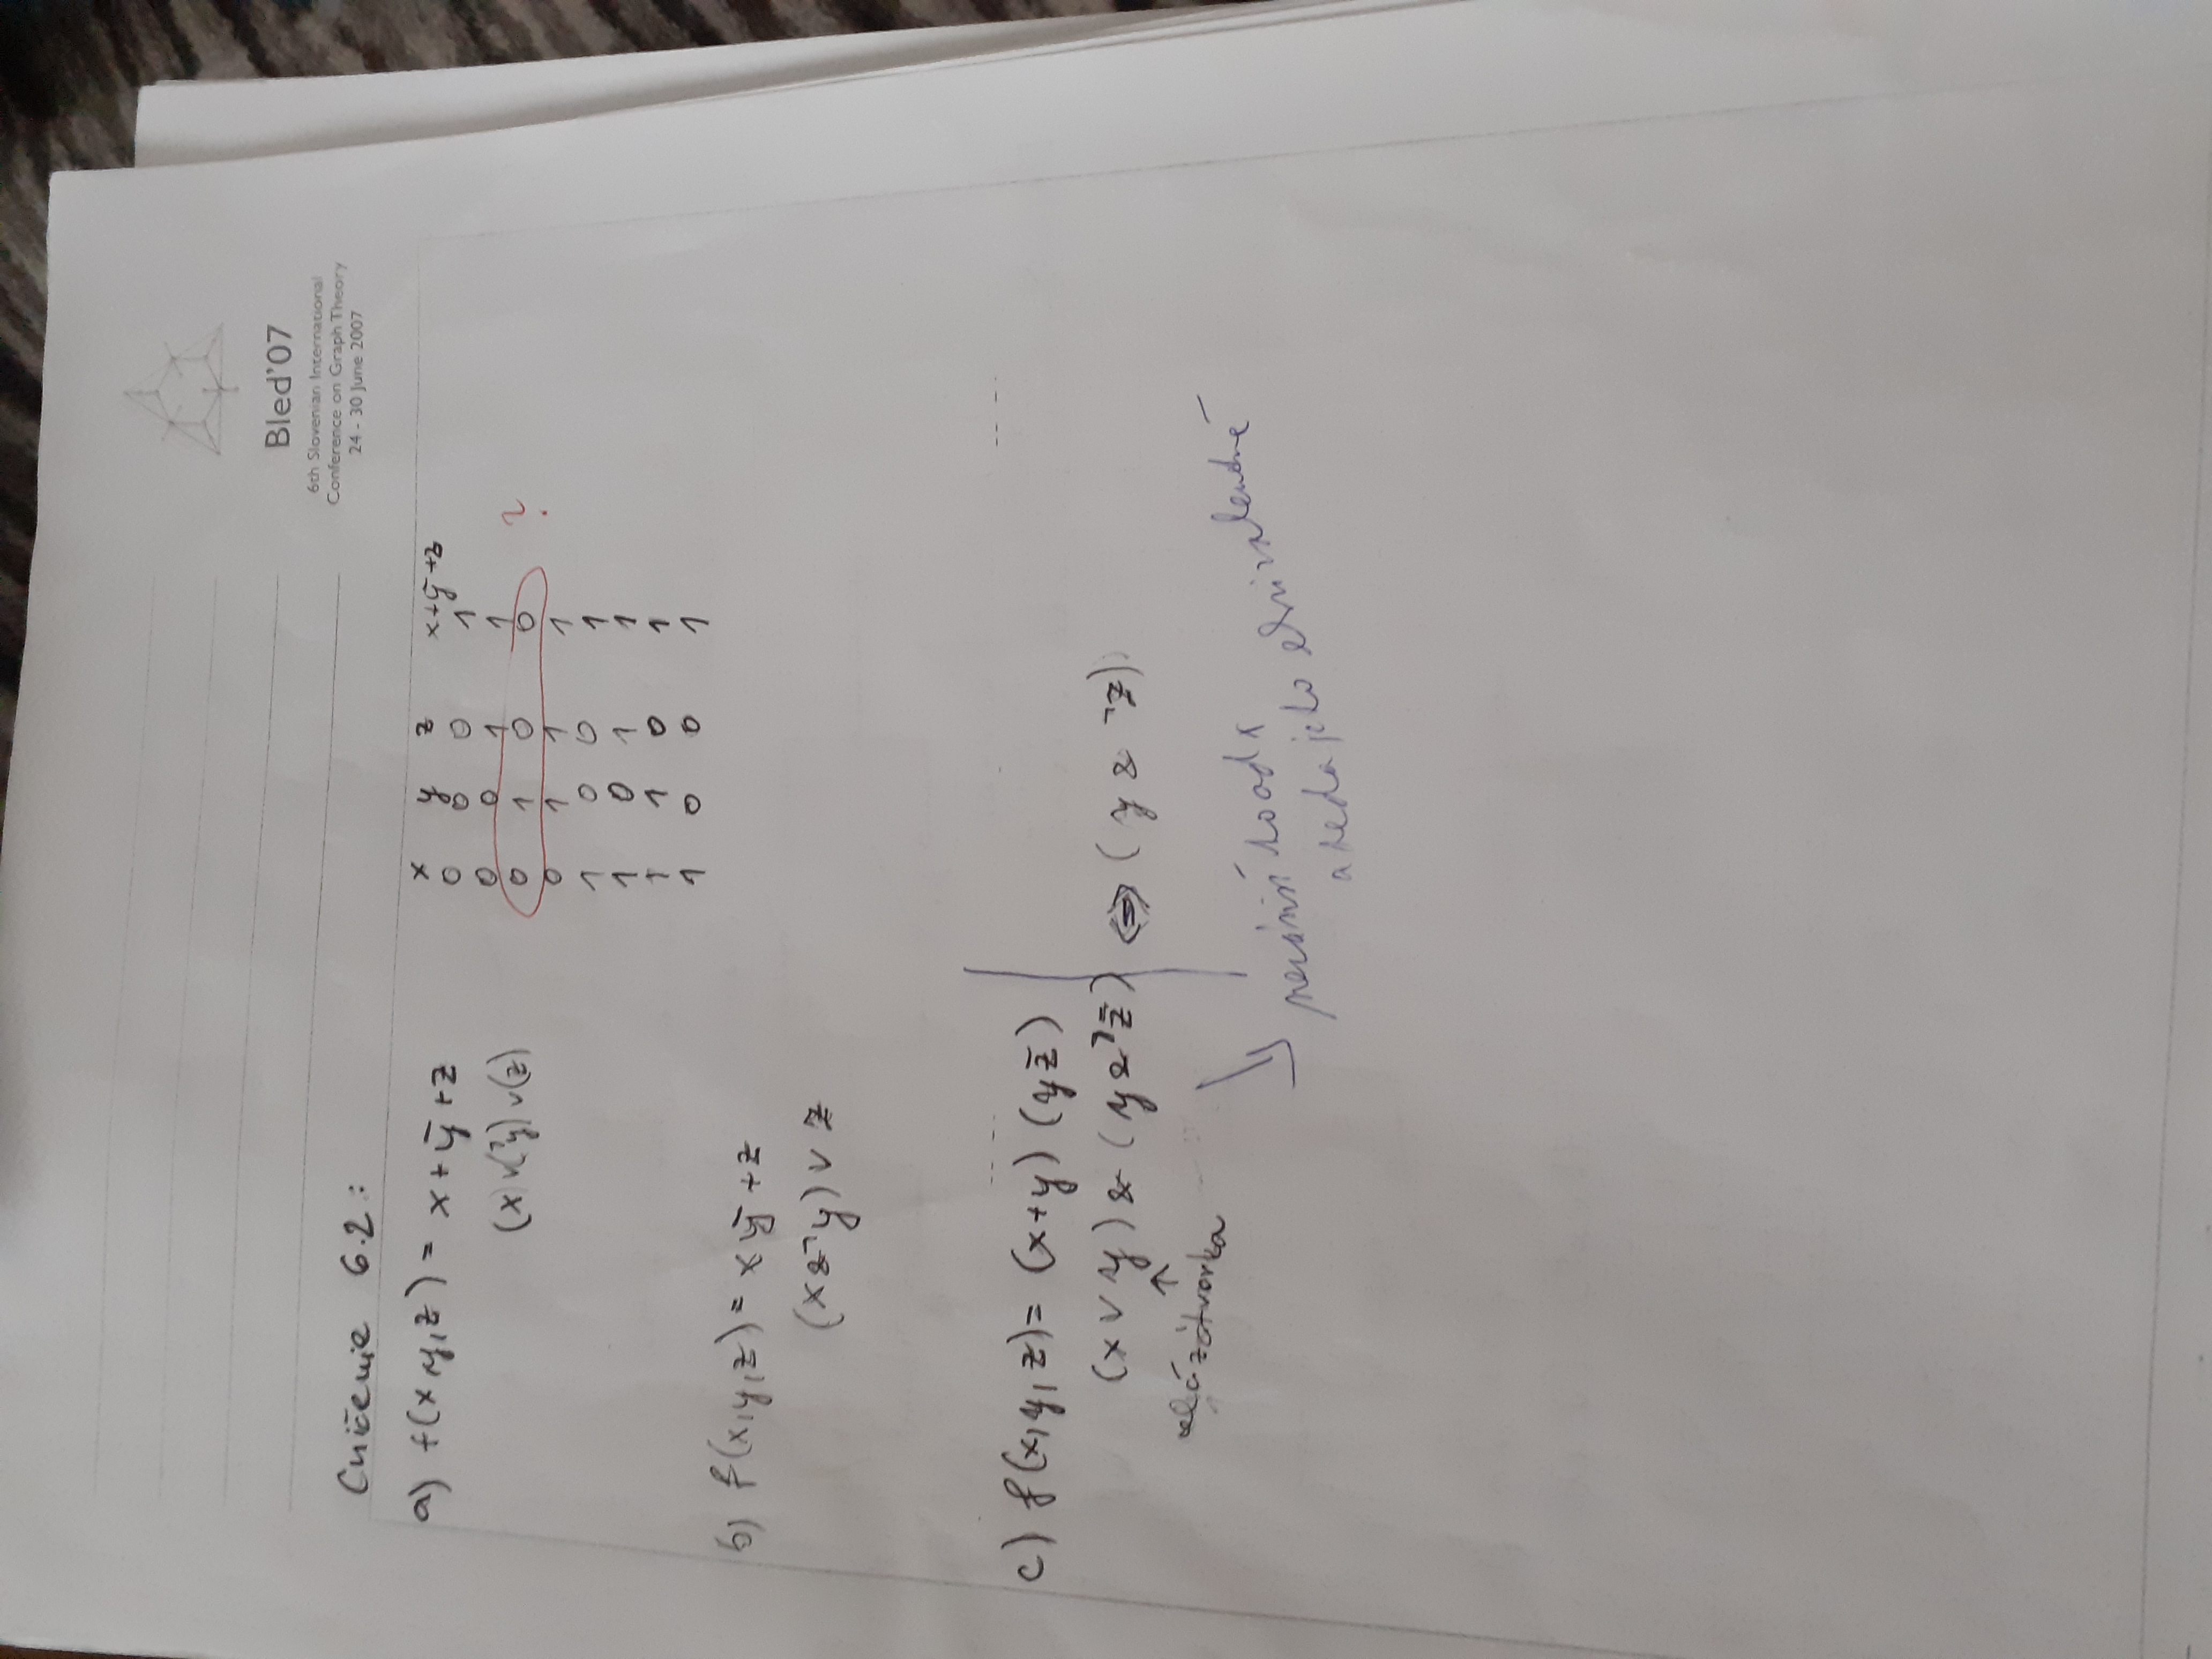 Bled'07
6th Slovenian International
Conference on Graph Theory
24 - 30 June 2007
Cvičenie 6.2:
a) f(x,y,z) = x + ȳ + z
(x) v (¬y) v (z)
x y z x+ȳ+z
0 0 0 1
0 0 1 1
0 1 0 0 ?
0 1 1 1
1 0 0 1
1 0 1 1
1 1 0 1
1 0 0 1
b) f(x,y,z) = x ȳ + z
(x & ¬y) v z
c) f(x,y,z) = (x+y) (y z̄)
(x v y) & (y & ¬z̄) ⇔ (y & ¬z)
↑
zátvorka
a nedá je to ekvivalentné